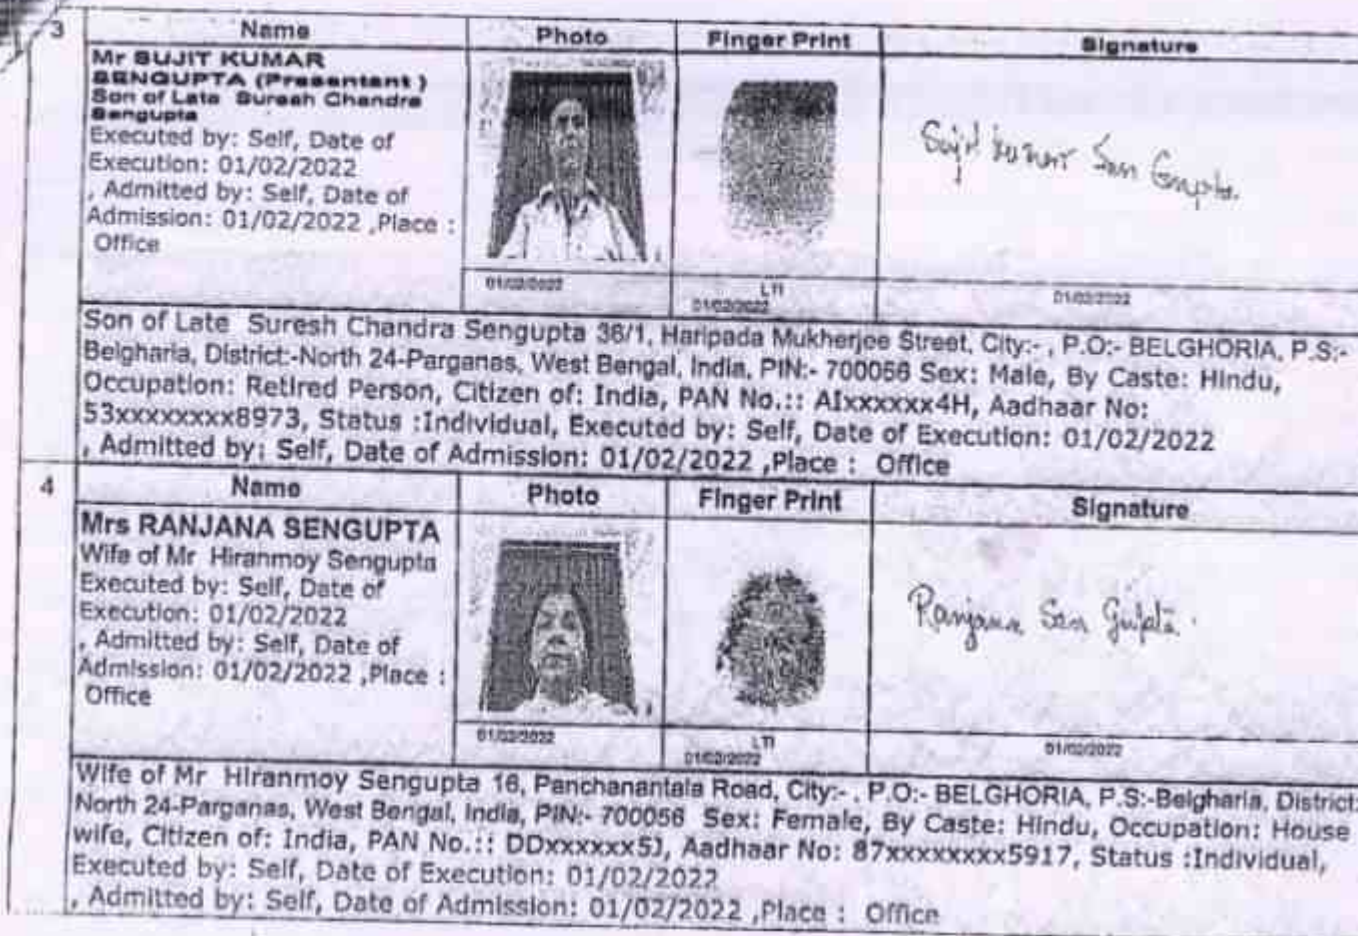 3 Name Photo Finger Print Signature
Mr SUJIT KUMAR
SENGUPTA (Presentant )
Son of Late Suresh Chandra
Sengupta
Executed by: Self, Date of
Execution: 01/02/2022
, Admitted by: Self, Date of
Admission: 01/02/2022 ,Place :
Office
Sujit kumar Sen Gupta.
01/02/2022 LTI 01/02/2022
01/02/2022
Son of Late Suresh Chandra Sengupta 36/1, Haripada Mukherjee Street, City:- , P.O:- BELGHORIA, P.S:-
Belgharia, District:-North 24-Parganas, West Bengal, India, PIN:- 700056 Sex: Male, By Caste: Hindu,
Occupation: Retired Person, Citizen of: India, PAN No.:: AIxxxxxx4H, Aadhaar No:
53xxxxxxxx8973, Status :Individual, Executed by: Self, Date of Execution: 01/02/2022
, Admitted by: Self, Date of Admission: 01/02/2022 ,Place : Office
4 Name Photo Finger Print Signature
Mrs RANJANA SENGUPTA
Wife of Mr Hiranmoy Sengupta
Executed by: Self, Date of
Execution: 01/02/2022
, Admitted by: Self, Date of
Admission: 01/02/2022 ,Place :
Office
Ranjana Sen Gupta.
01/02/2022 LTI 01/02/2022
01/02/2022
Wife of Mr Hiranmoy Sengupta 16, Panchanantala Road, City:- , P.O:- BELGHORIA, P.S:-Belgharia, District:
North 24-Parganas, West Bengal, India, PIN:- 700056 Sex: Female, By Caste: Hindu, Occupation: House
wife, Citizen of: India, PAN No.:: DDxxxxxx5J, Aadhaar No: 87xxxxxxxx5917, Status :Individual,
Executed by: Self, Date of Execution: 01/02/2022
, Admitted by: Self, Date of Admission: 01/02/2022 ,Place : Office